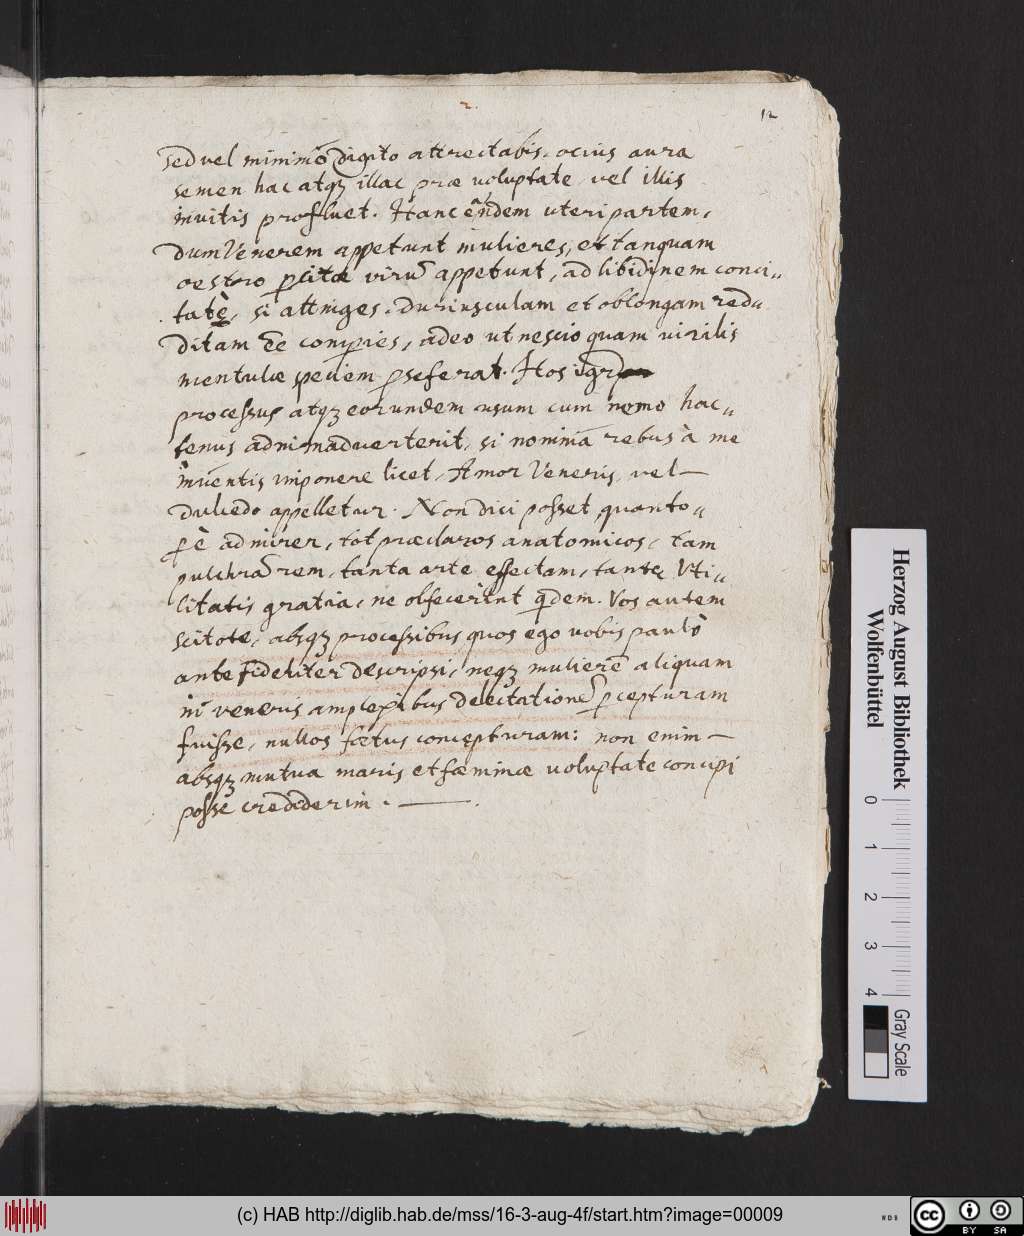 2.
12
sed vel minimō digito attrectabis. ocius aura
semen hac atqꝫ illac præ voluptate, vel illis
invitis profluet. Hanc eāndem uteri partem,
dum Venerem appetunt mulieres, et tanquam
oestro ꝑcitæ virū appetunt, ad libidinem conci„
tatę, si attinges. duriusculam et oblongam redd„
ditam ēe comperies, adeo ut nescio quam virilis
mentulæ speciem ꝓ se ferat. Hos igr̄
processus atqꝫ eorundem usum cum nemo hac„
tenus adnimadverterit, si nominā rebus à me
inventis imponere licet, Amor Veneris, vel —
dulcedo appelletur. Non dici posset quanto„
ꝑè admirer, tot præclaros anatomicos, tam
pulchrā rem, tanta arte effectam, tantę Uti„
litatis gratia, ne olfecerint qdem. Vos autem
scitote, absqꝫ processibus quos ego vobis paulò
ante fideliter descripsi, neqꝫ mulierē aliquam
in veneris amplexibus delectationē ꝑcepturam
fuisse, nullos fœtus concepturam: non enim —
absqꝫ mutua maris et fæminæ voluptate concipi
posse crediderim. —
Herzog August Bibliothek
Wolfenbüttel
0 1 2 3 4
Gray Scale
(c) HAB http://diglib.hab.de/mss/16-3-aug-4f/start.htm?image=00009
WDB
cc BY SA